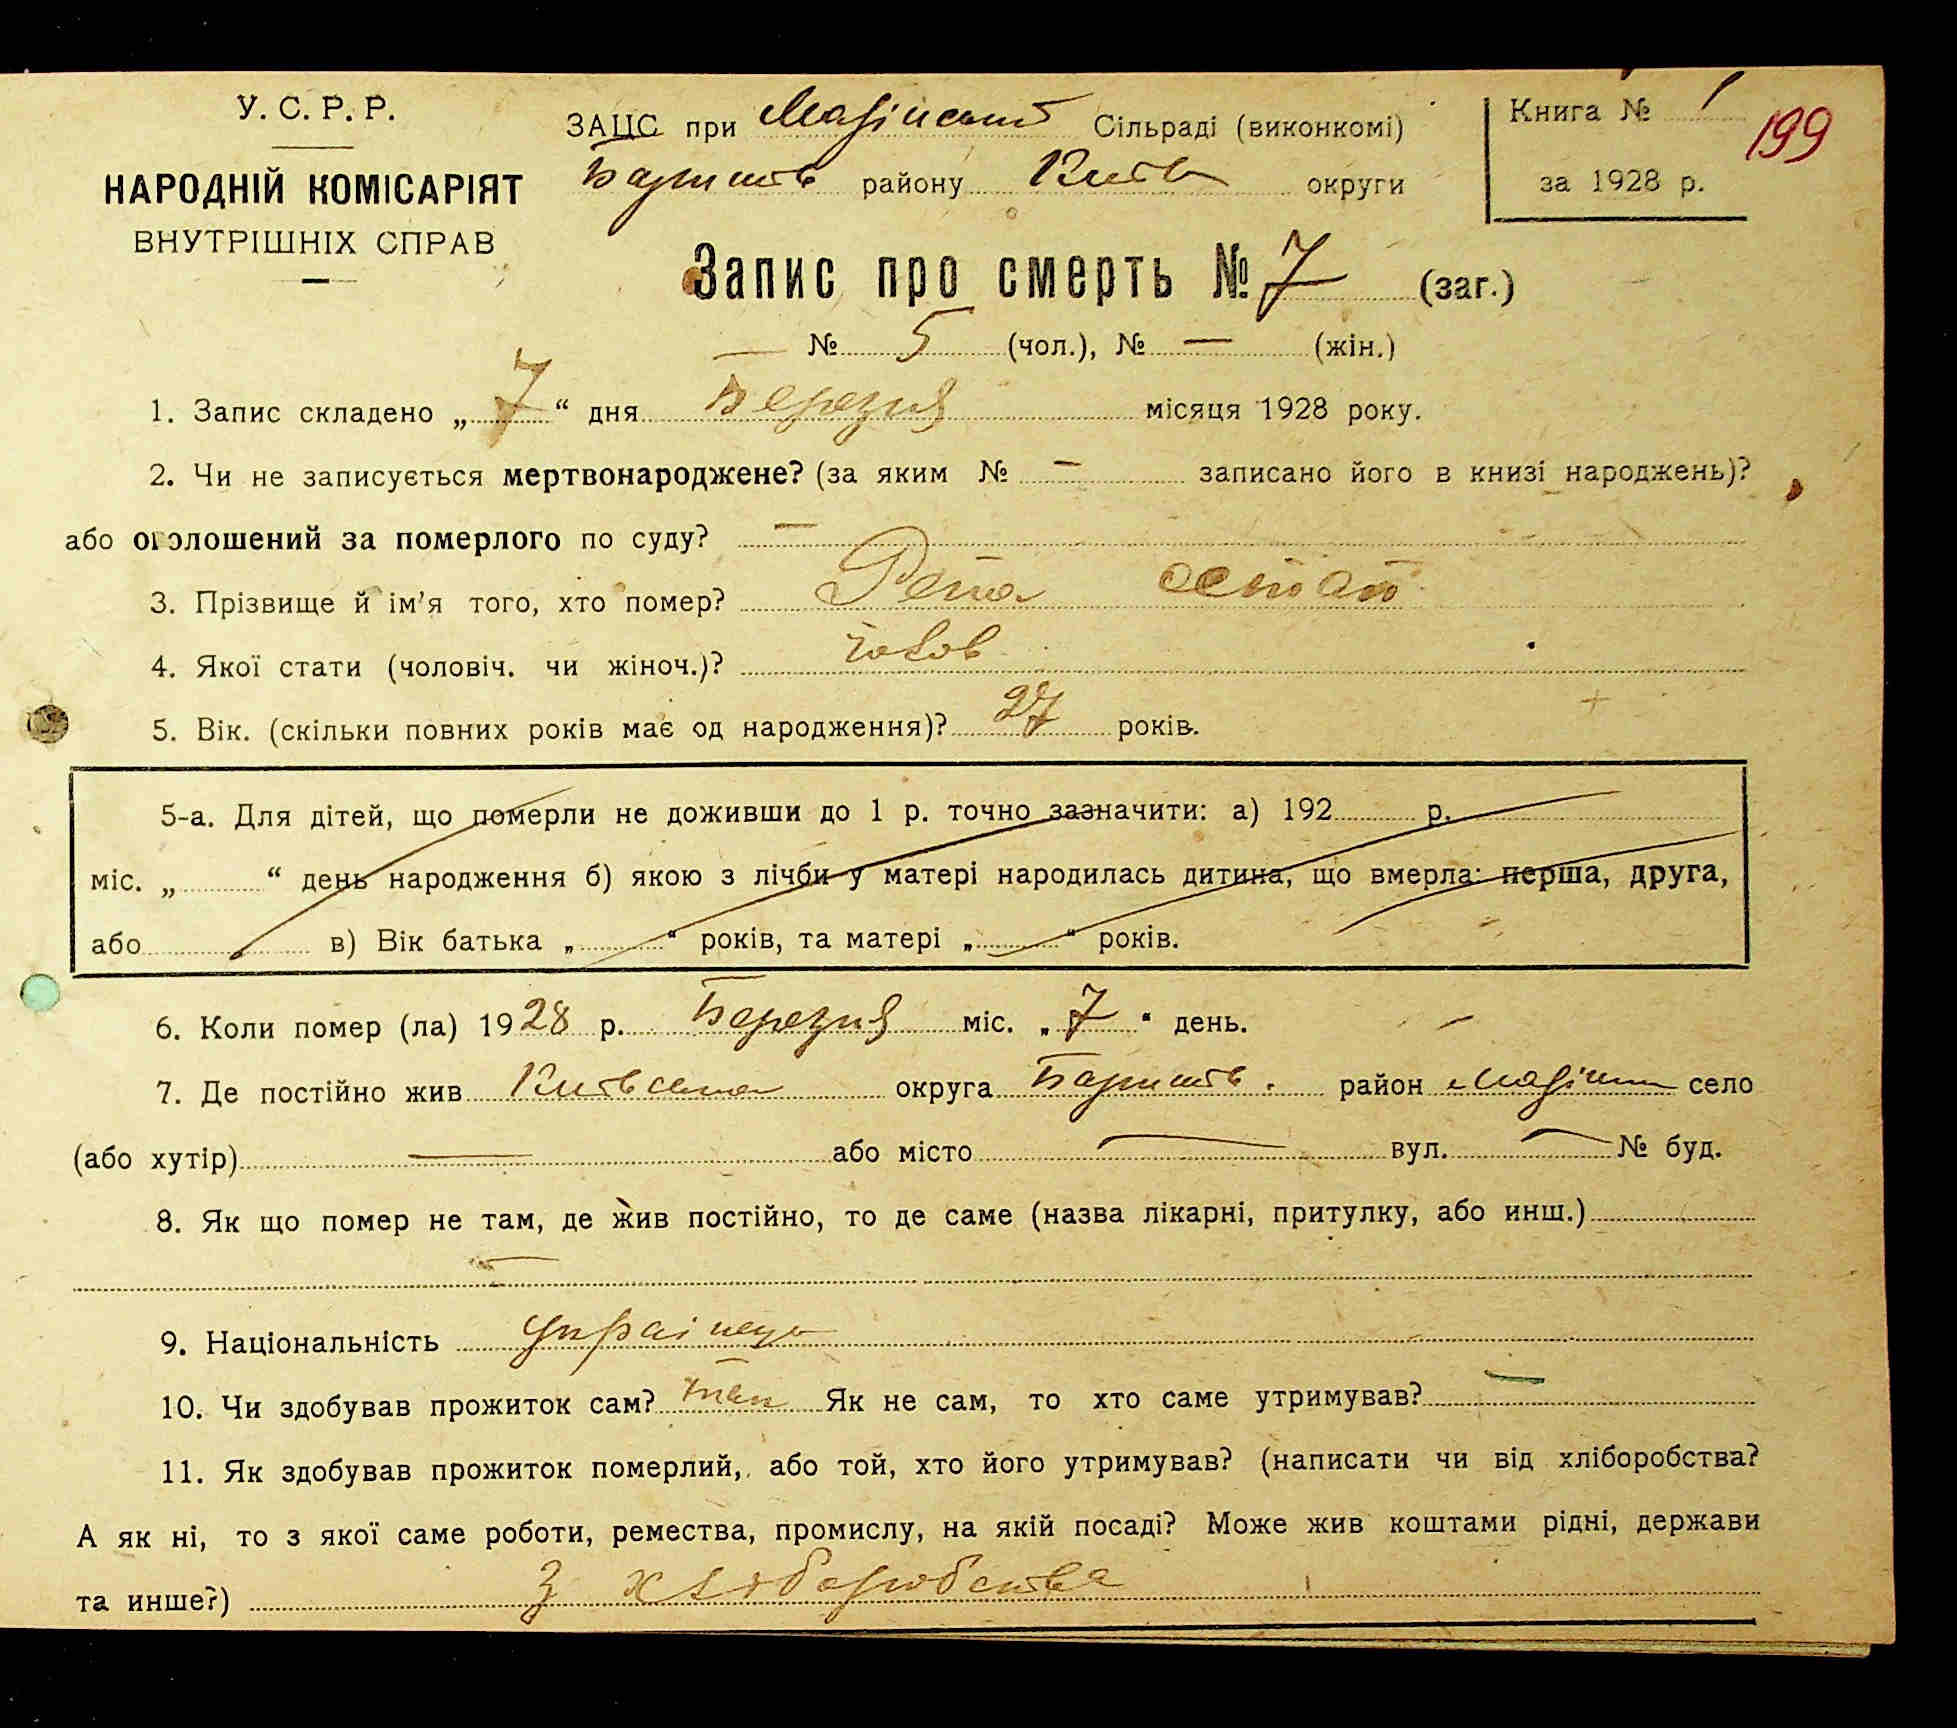 У. С. Р. Р.
НАРОДНІЙ КОМІСАРІЯТ
ВНУТРІШНІХ СПРАВ
ЗАЦС при Сільраді (виконкомі)
району округи
Книга № 1
199
за 1928 р.
Запис про смерть № 7 (заг.)
№ 5 (чол.), № — (жін.)
1. Запис складено „ 7 “ дня Березня місяця 1928 року.
2. Чи не записується мертвонароджене? (за яким № — записано його в книзі народжень)?
або оголошений за померлого по суду? —
3. Прізвище й ім’я того, хто помер? Репа Остап
4. Якої стати (чоловіч. чи жіноч.)? чолов
5. Вік. (скільки повних років має од народження)? 27 років.
5-а. Для дітей, що померли не доживши до 1 р. точно зазначити: а) 192 р.
міс. „ “ день народження б) якою з лічби у матері народилась дитина, що вмерла: перша, друга,
або в) Вік батька „ “ років, та матері „ “ років.
6. Коли помер (ла) 1928 р. Березня міс. „ 7 “ день.
7. Де постійно жив округа район село
(або хутір) — або місто — вул. — № буд.
8. Як що помер не там, де жив постійно, то де саме (назва лікарні, притулку, або инш.)
—
9. Національність українец
10. Чи здобував прожиток сам? так Як не сам, то хто саме утримував? —
11. Як здобував прожиток померлий, або той, хто його утримував? (написати чи від хліборобства?
А як ні, то з якої саме роботи, ремества, промислу, на якій посаді? Може жив коштами рідні, держави
та инше?) З хліборобства